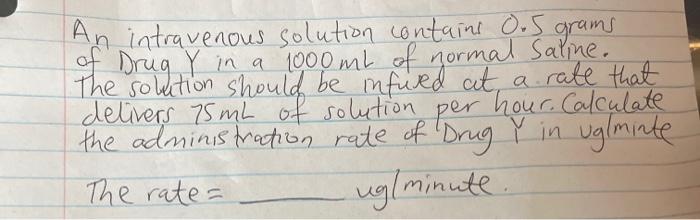 An intravenous solution contains 0.5 grams
of Drug Y in a 1000 mL of normal Saline.
The solution should be infused at a rate that
delivers 75 mL of solution per hour. Calculate
the administration rate of Drug Y in ug/minte
The rate = ______ ug/minute.